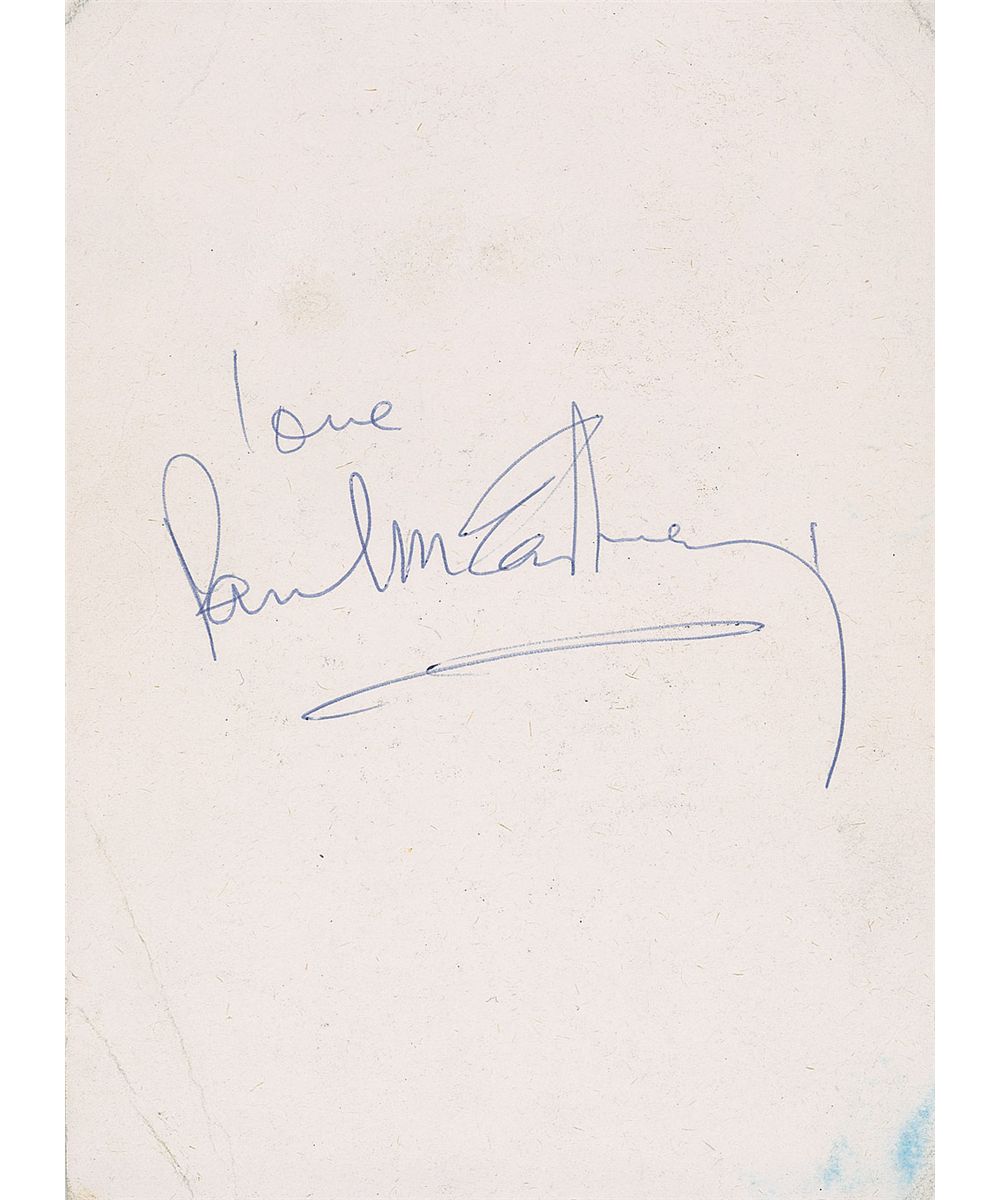 love
Paul McCartney